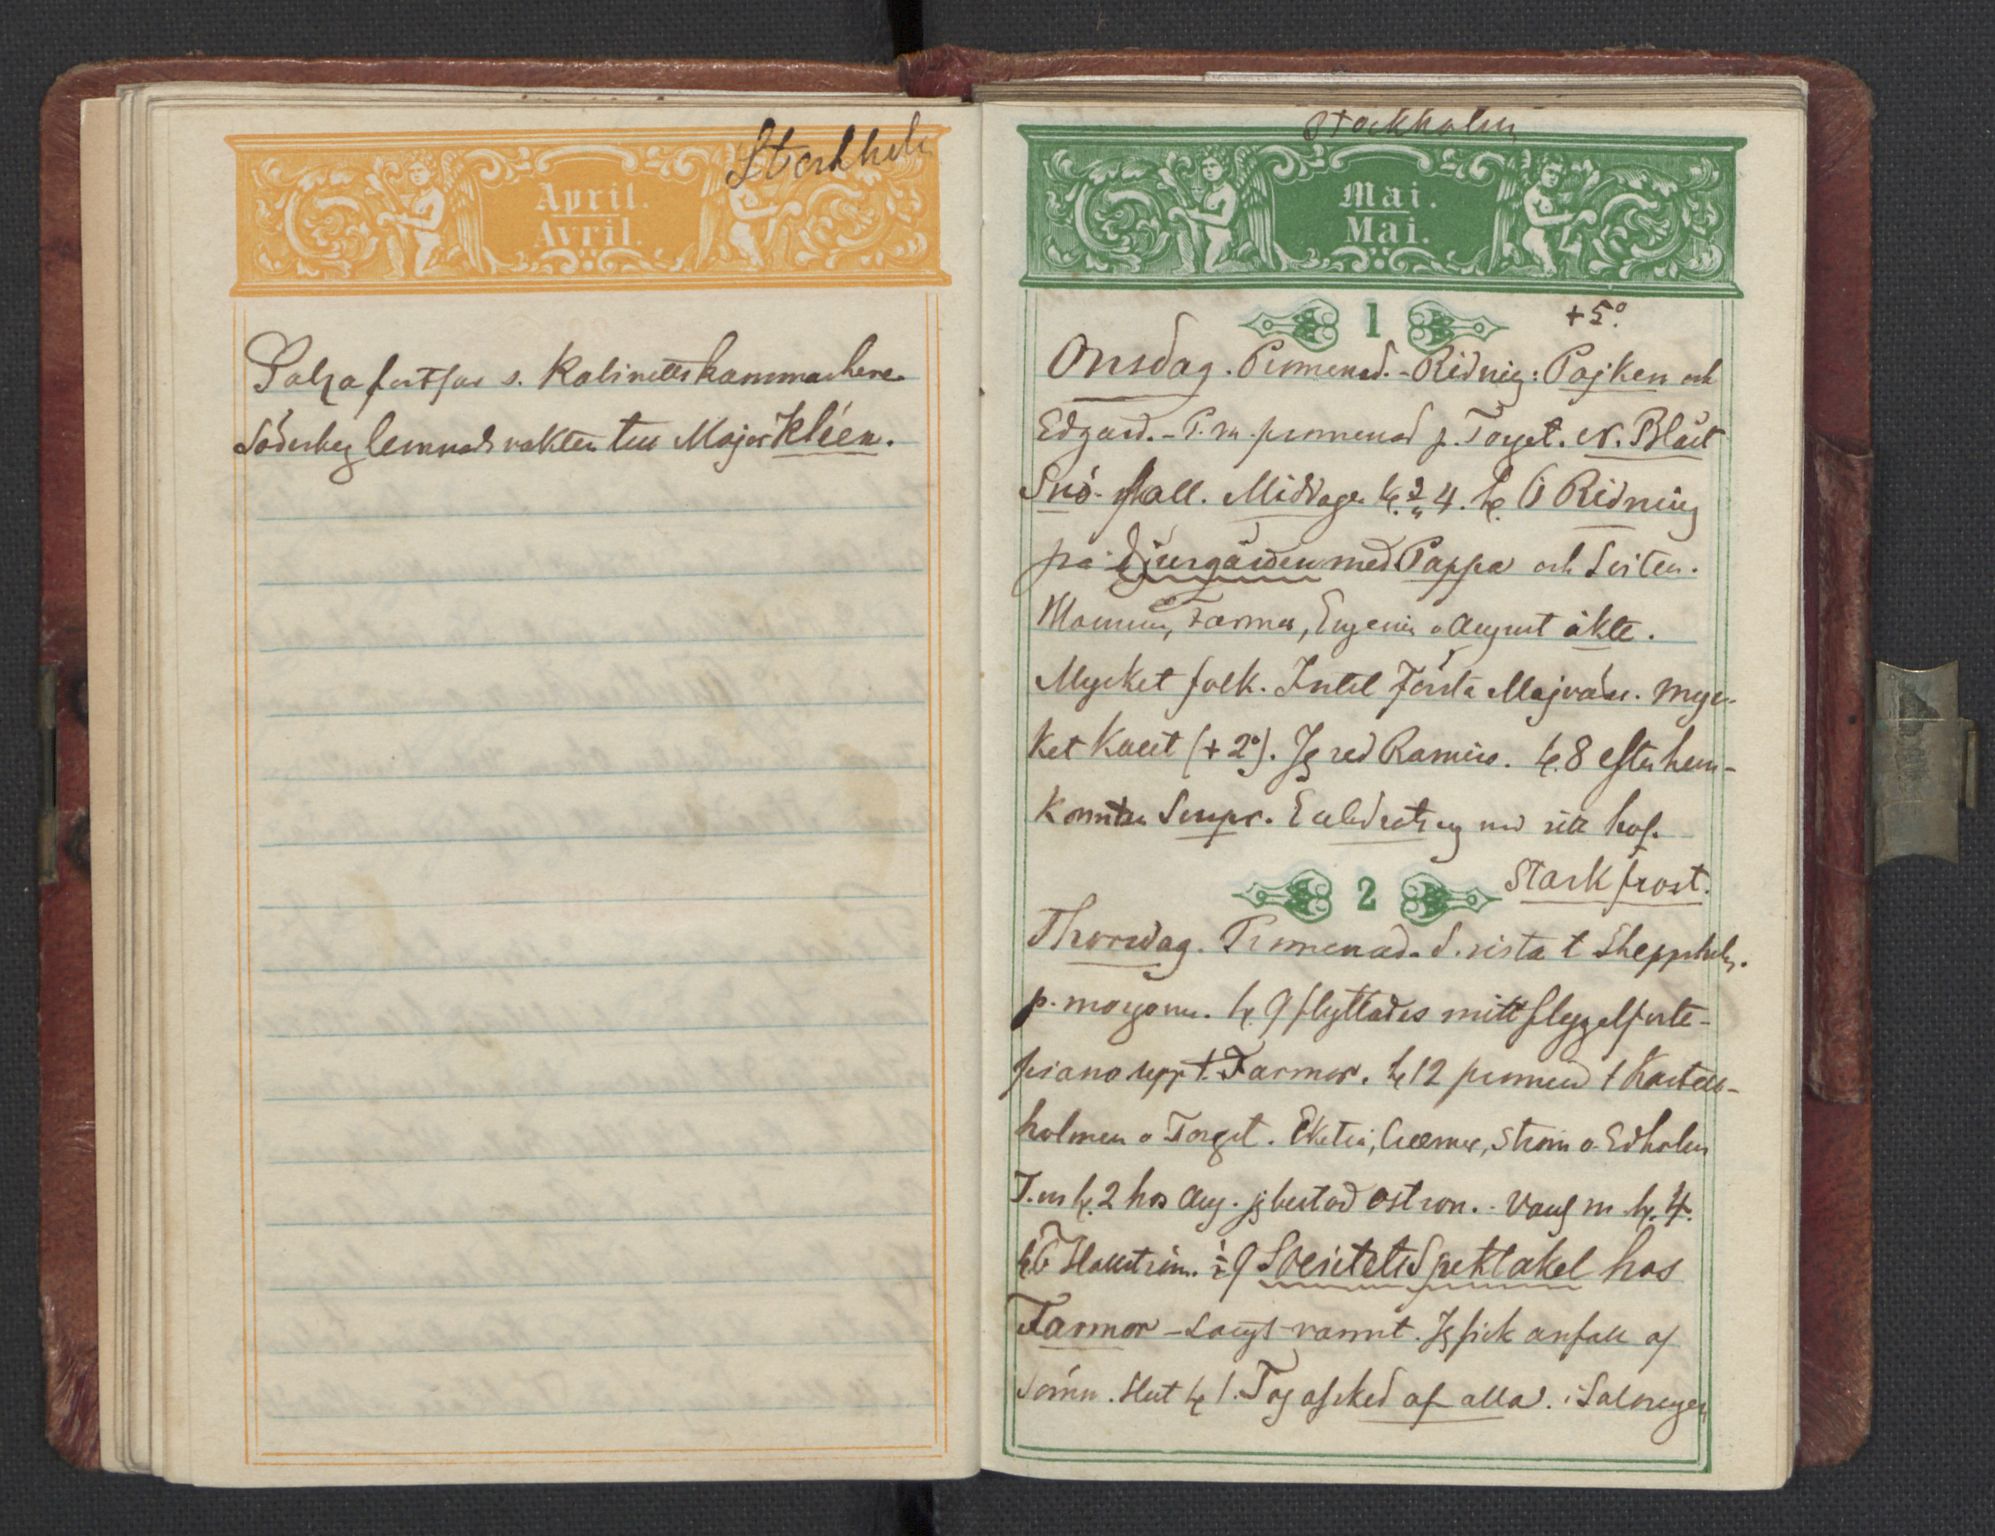 Stockholm
April.
Avril.
Salza fortfar s. Kabinettskammarherre
Söderberg lemnade vakten till Major Kléen.
Stockholm
Mai.
Mai.
1 +5°.
Onsdag. Promenad. - Ridning: Pojken och
Edgard. - F.m. promenad p. Torget. N. Blåst
Snö-fall. Middagen kl. 4. kl. 6 Ridning
på Djurgården med Pappa och Sviten.
Mamma, Farmor, Eugenie o August åkte.
Mycket folk. Intet Första Majväder. Myc-
ket kallt (+2°). Jg red Ramiro. kl. 8 efter hem-
komsten Souper. med sitt hof.
2 Stark frost.
Thorsdag. Promenad. d. sista t Skeppsholm.
p. morgonen. kl. 9 flyttades mitt flygelforte-
piano upp t. Farmor. kl 12 promenad t Kastell-
holmen o Torget. Ström o Edholm
F.m kl. 2 hos Aug. jg bestod ostron. - m kl. 4.
kl 6 Hallström. ½ 9 Societetsspektakel hos
Farmor - Långt varmt. Jg fick anfall af
Sömn. Slut kl 1. Tog afsked af alla. i Salongen